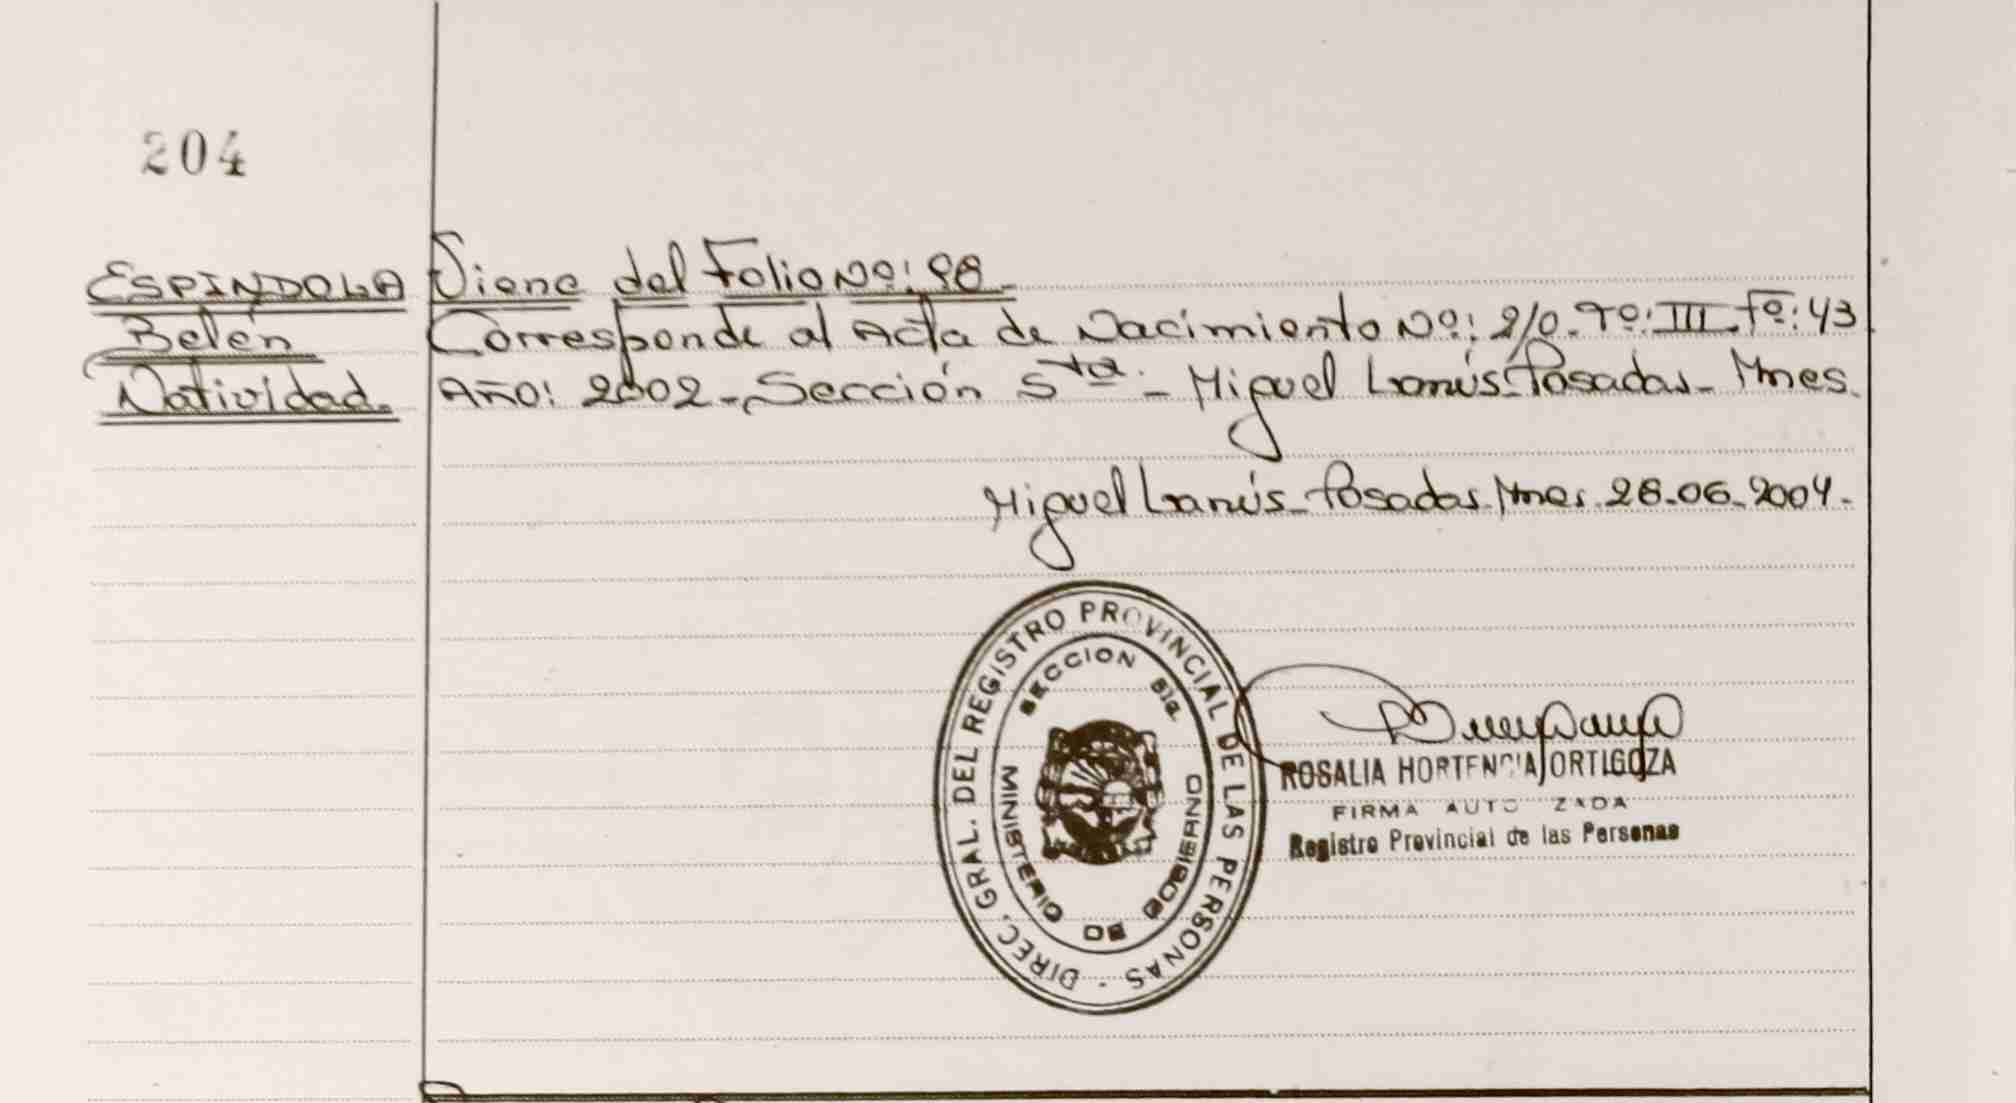 204
ESPINDOLA
Belén
Natividad.
Viene del Folio Nº: 98.
Corresponde al Acta de Nacimiento Nº: 210. Tº: III. Fº: 43.
Año: 2002 - Sección 5ta. - Miguel Lanús - Posadas - Mnes.
Miguel Lanús - Posadas - Mnes. 28-06-2004.-
DIREC. GRAL. DEL REGISTRO PROVINCIAL DE LAS PERSONAS
SECCION
MINISTERIO DE GOBIERNO
ROSALIA HORTENCIA ORTIGOZA
FIRMA AUTORIZADA
Registro Provincial de las Personas